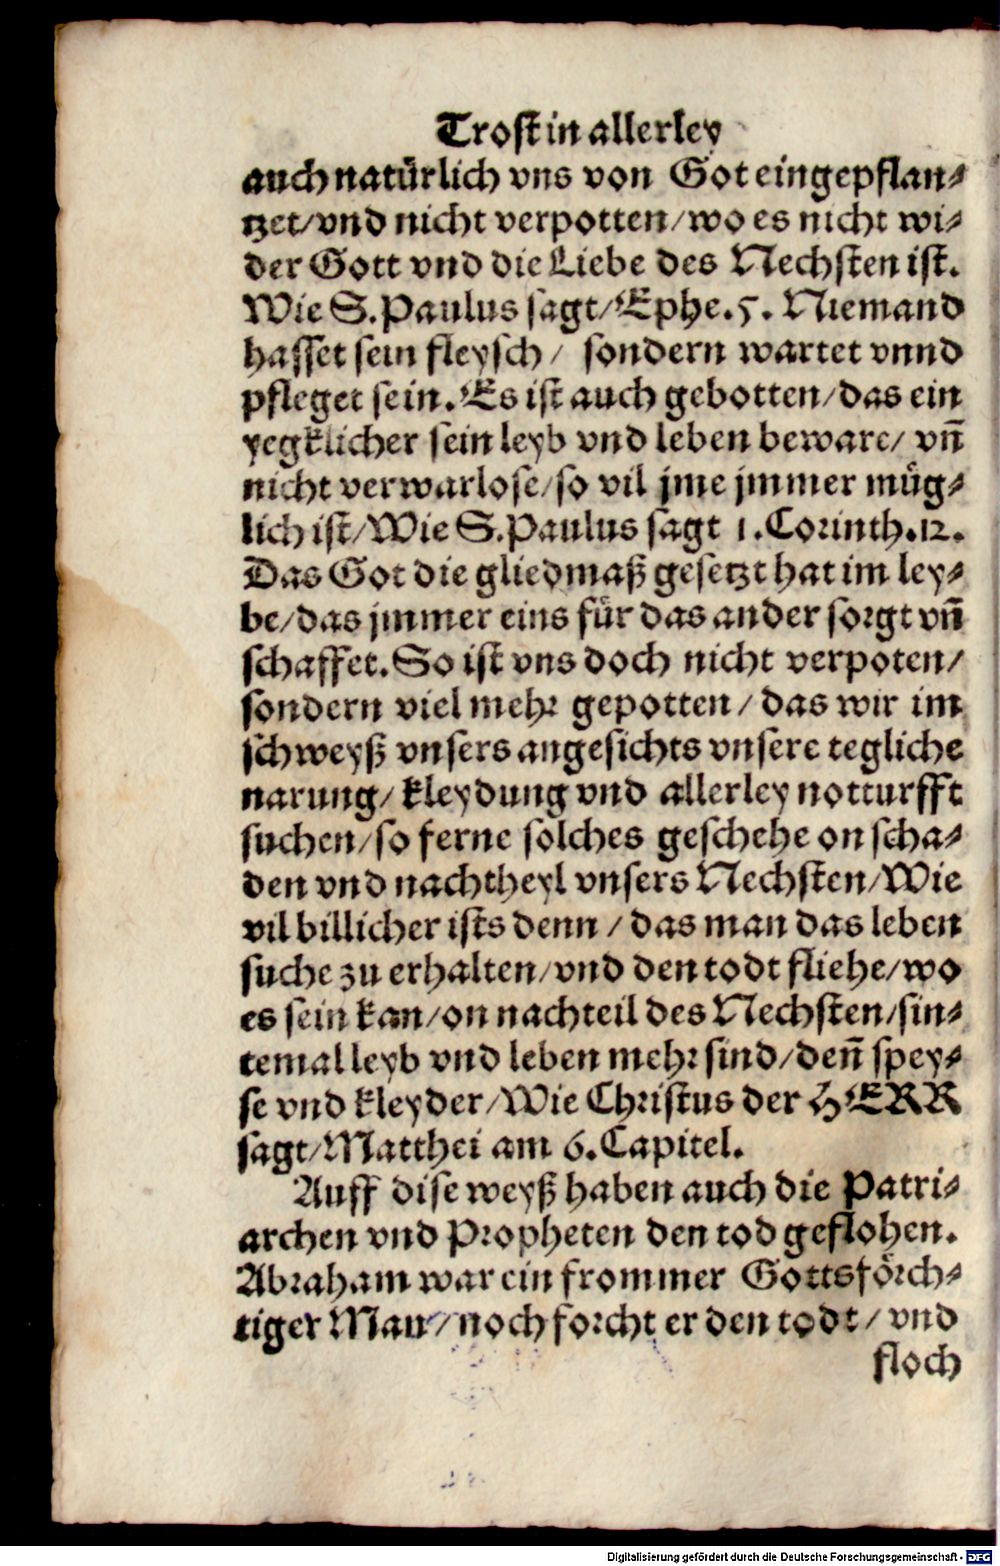 Trost in allerley
auch natürlich vns von Got eingepflan⸗
tzet/vnd nicht verpotten/wo es nicht wi⸗
der Gott vnd die Liebe des Nechsten ist.
Wie S. Paulus sagt/Ephe. 5. Niemand
hasset sein fleysch/ sondern wartet vnnd
pfleget sein. Es ist auch gebotten/das ein
yegklicher sein leyb vnd leben beware/ vn̄
nicht verwarlose/so vil jme jmmer müg⸗
lich ist/Wie S. Paulus sagt 1. Corinth. 12.
Das Got die gliedmaß gesetzt hat im ley⸗
be/das jmmer eins für das ander sorgt vn̄
schaffet. So ist vns doch nicht verpoten/
sondern viel mehr gepotten/ das wir im
schweyß vnsers angesichts vnsere tegliche
narung/ kleydung vnd allerley notturfft
suchen/so ferne solches geschehe on scha⸗
den vnd nachtheyl vnsers Nechsten/Wie
vil billicher ists denn / das man das leben
suche zu erhalten/vnd den todt fliehe/wo
es sein kan/on nachteil des Nechsten/sin⸗
temal leyb vnd leben mehr sind/den̄ spey⸗
se vnd kleyder/Wie Christus der HERR
sagt/Matthei am 6. Capitel.
Auff dise weyß haben auch die Patri⸗
archen vnd Propheten den tod geflohen.
Abraham war ein frommer Gottsförch⸗
tiger Man/noch forcht er den todt/ vnd
floch
Digitalisierung gefördert durch die Deutsche Forschungsgemeinschaft - DFG